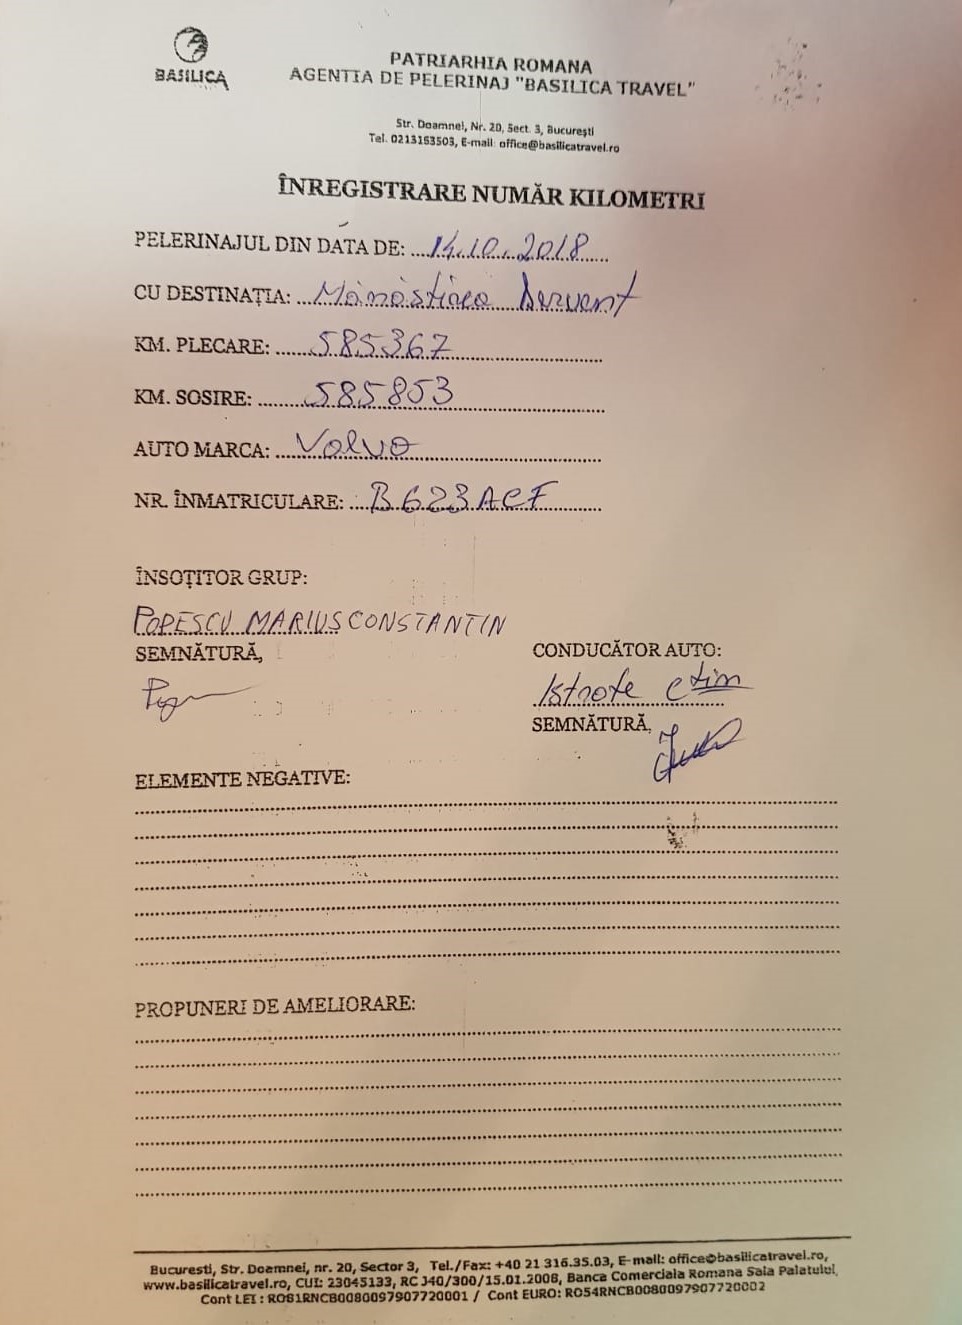 BASILICA
PATRIARHIA ROMANA
AGENTIA DE PELERINAJ "BASILICA TRAVEL"
Str. Doamnei, Nr. 20, Sect. 3, Bucureşti
Tel. 0213163503, E-mail: office@basilicatravel.ro
ÎNREGISTRARE NUMĂR KILOMETRI
PELERINAJUL DIN DATA DE: 14.10.2018
CU DESTINAŢIA: Mănăstirea Dervent
KM. PLECARE: 585367
KM. SOSIRE: 585853
AUTO MARCA: Volvo
NR. ÎNMATRICULARE: B 623 ACF
ÎNSOŢITOR GRUP:
POPESCU MARIUS CONSTANTIN
SEMNĂTURĂ,
CONDUCĂTOR AUTO:
Istrate
SEMNĂTURĂ,
ELEMENTE NEGATIVE:
PROPUNERI DE AMELIORARE:
Bucuresti, Str. Doamnei, nr. 20, Sector 3, Tel./Fax: +40 21 316.35.03, E-mail: office@basilicatravel.ro,
www.basilicatravel.ro, CUI: 23045133, RC J40/300/15.01.2008, Banca Comerciala Romana Sala Palatului,
Cont LEI : RO81RNCB0080097907720001 / Cont EURO: RO54RNCB0080097907720002